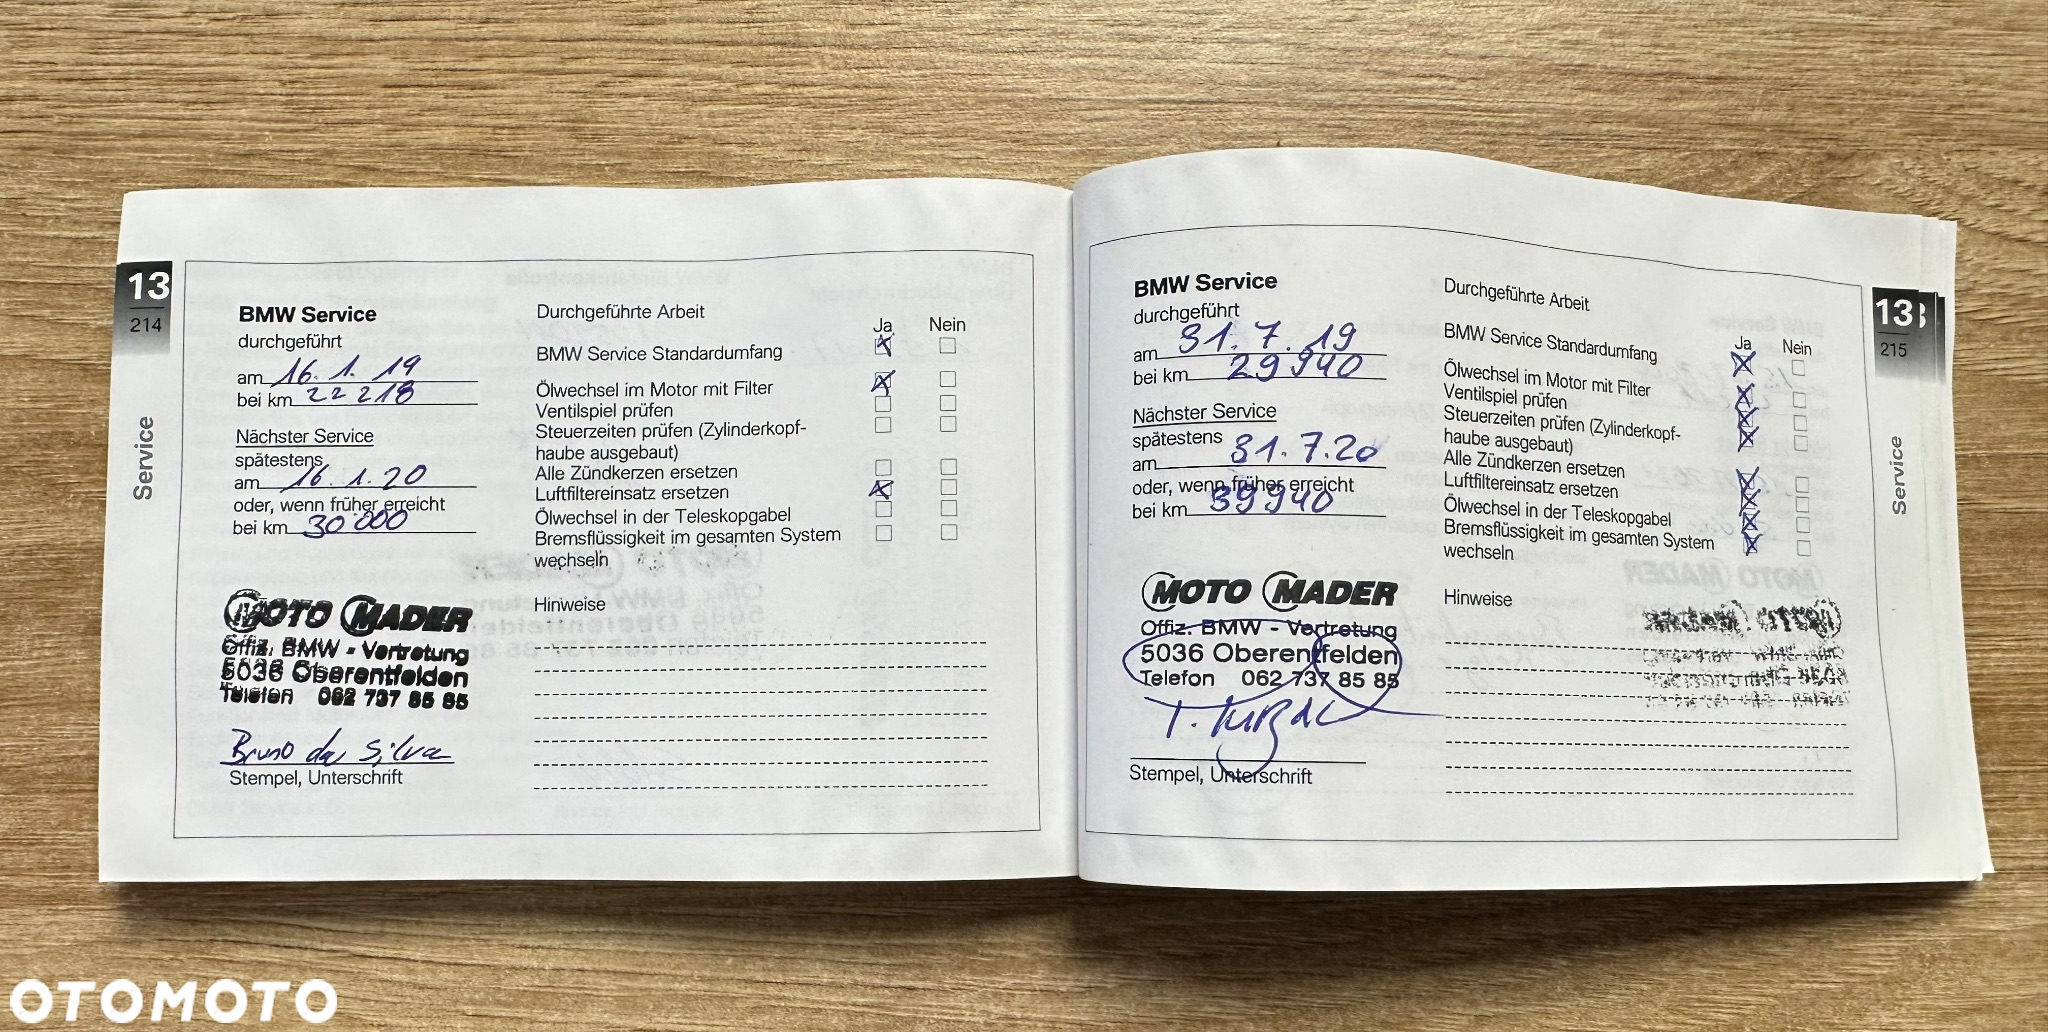 13
214
Service
BMW Service
durchgeführt
am 16. 1. 19
bei km 22 218
Nächster Service
spätestens
am 16. 1. 20
oder, wenn früher erreicht
bei km 30 000
MOTO MADER
Offiz. BMW - Vertretung
5036 Oberentfelden
Telefon 062 737 85 85
Bruno da Silva
Stempel, Unterschrift
Durchgeführte Arbeit
Ja Nein
BMW Service Standardumfang
Ölwechsel im Motor mit Filter
Ventilspiel prüfen
Steuerzeiten prüfen (Zylinderkopf-
haube ausgebaut)
Alle Zündkerzen ersetzen
Luftfiltereinsatz ersetzen
Ölwechsel in der Teleskopgabel
Bremsflüssigkeit im gesamten System
wechseln
Hinweise
BMW Service
durchgeführt
am 31. 7. 19
bei km 29 940
Nächster Service
spätestens
am 31. 7. 20
oder, wenn früher erreicht
bei km 39940
MOTO MADER
Offiz. BMW - Vertretung
5036 Oberentfelden
Telefon 062 737 85 85
Stempel, Unterschrift
Durchgeführte Arbeit
Ja Nein
BMW Service Standardumfang
Ölwechsel im Motor mit Filter
Ventilspiel prüfen
Steuerzeiten prüfen (Zylinderkopf-
haube ausgebaut)
Alle Zündkerzen ersetzen
Luftfiltereinsatz ersetzen
Ölwechsel in der Teleskopgabel
Bremsflüssigkeit im gesamten System
wechseln
Hinweise
13
215
Service
OTOMOTO